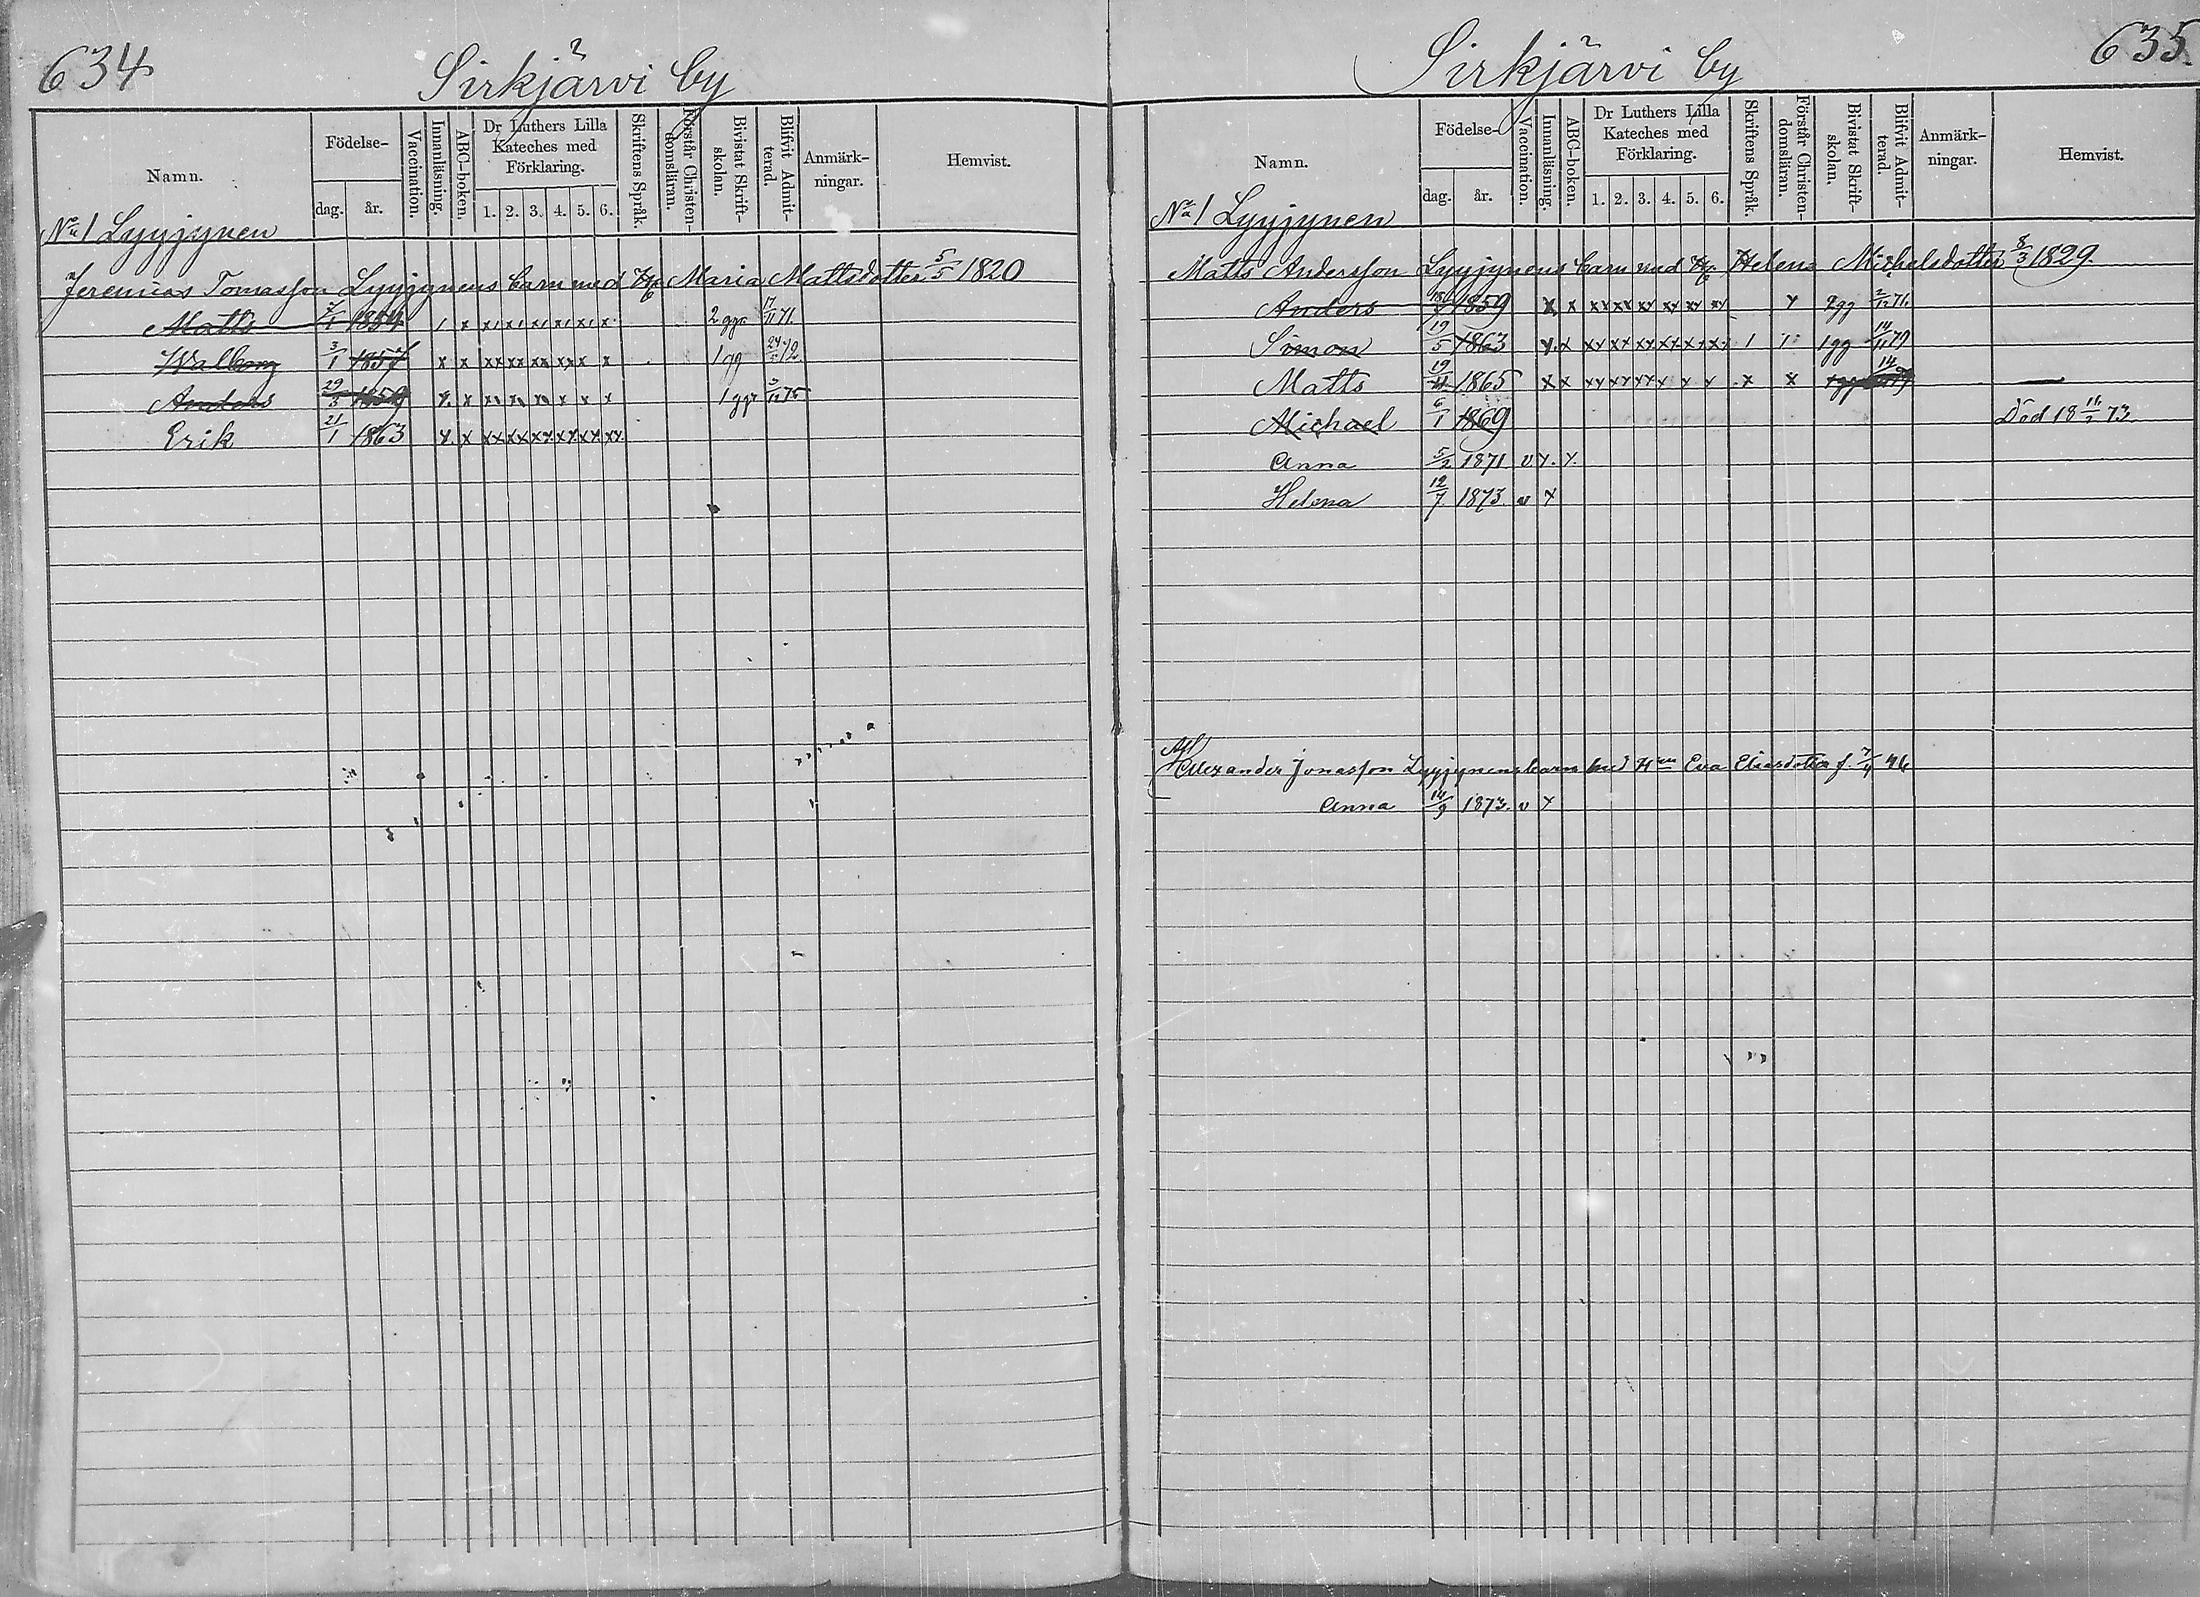 634
Sirkjärvi by
Namn. Födelse- dag. år. Vaccination. Innanläsning. ABC-boken. Dr Luthers Lilla Kateches med Förklaring. 1. 2. 3. 4. 5. 6. Skriftens Språk. Förstår Christen-domsläran. Bivistat Skrift-skolan. Blifvit Admit-terad. Anmärk-ningar. Hemvist.
No 1 Lyyjynen
Jeremias Tomasson Lyyjynens barn med Maria Mattsdotter 5/5 1820
Matts 7/1 1854 / x x/ x/ x/ x/ x/ x 2 ggr 17/11 71.
Walborg 3/1 1857 x x xx xx xx xx x x 1 gg 24/5 72
Anders 29/5 1859 x x x x x x x x 1 ggr 3/12 75
Erik 21/1 1863 x x xx xx xx xx xx xx
635.
Sirkjärvi by
Namn. Födelse- dag. år. Vaccination. Innanläsning. ABC-boken. Dr Luthers Lilla Kateches med Förklaring. 1. 2. 3. 4. 5. 6. Skriftens Språk. Förstår Christen-domsläran. Bivistat Skrift-skolan. Blifvit Admit-terad. Anmärk-ningar. Hemvist.
No 1 Lyyjynen
Matts Andersson Lyyjynens barn med Helena Michelsdotter 8/3 1829.
Anders 1859 x x xx xx xx xx xx xx x gg 2/12 71.
Simon 19/5 1863 x x xx xx xx xx xx xx 1 1 gg 14/11 79
Matts 19/11 1865 x x xx xx xx x x x x x 14
Michael 6/1 1869 Död 18 11/2 73.
Anna 5/2 1871 v x x
Helena 12/7 1873. v x
Alexander Jonasson Lyyjynens barn med Eva Eliasdotter f. 7/4 46
Anna 14/9 1873. v x